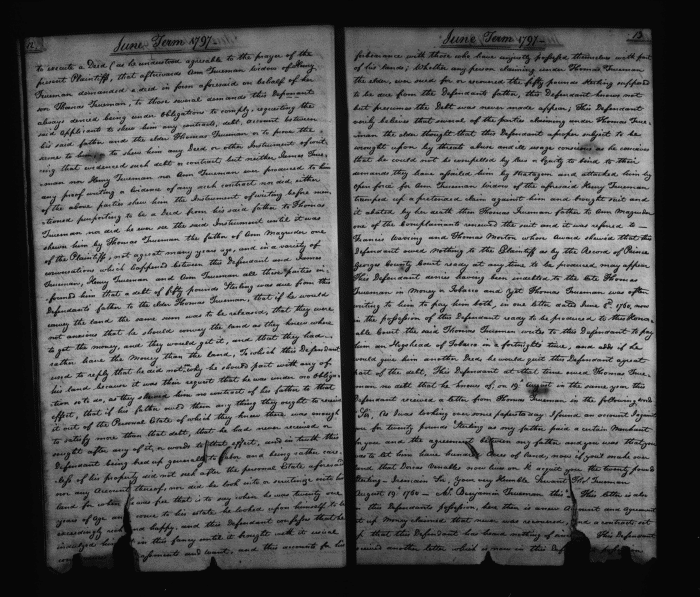 12
June Term 1797
to execute a Deed (as he understood agreeable to the prayer of the
present Plaintiffs, that afterwards Ann Trueman widow of Henry
Trueman demanded a deed in form aforesaid on behalf of her
son Thomas Trueman, to those several demands this Defendant
always denied being under Obligation to comply, requesting the
said applicant to shew him any contract, debt, account between
his said father and the elder Thomas Trueman or to prove the
same to him, or to shew him any Deed or other Instrument of writ-
ing that evidenced such debt or contract but neither James True-
man nor Henry Trueman nor Ann Trueman ever produced to him
any proof writing or evidence of any such contract nor did either
of the above parties shew him the Instrument of Writing before men-
tioned purporting to be a Deed from his said father to Thomas
Trueman nor did he ever see the said Instrument until it was
shewn him by Thomas Trueman the father of Ann Magruder one
of the Plaintiffs, not a great many years ago, and in a variety of
conversations which happened between this Defendant and James
Trueman, Henry Trueman and Ann Trueman all three parties in-
formed him that a debt of fifty pounds Sterling was due from this
Defendants father to the elder Thomas Trueman, that if he would
convey the land the same sum was to be released, that they were
not anxious that he should convey the land as they knew where
to get the money, and they would get it, and that they had
rather have the Money than the Land, To which this Defendant
used to reply that he did not why he should part with any of
his land because it was their request that he was under no obliga-
tion so to do, as they shewed him no contract of his father to that
effect, that if his father owed them any thing they ought to receive
it out of the Personal Estate of which they knew there was enough
to satisfy more than that debt, that he had never received or
sought after any of it, or words to that effect, and in truth this
Defendant being bred of general to labor and being rather care-
less of his property did not seek after the personal Estate aforesaid
nor any Account thereof, nor did he look into or meditate into his
land for when it was for that is to say when he was twenty one
years of Age and come to his estate he looked upon himself to be
exceedingly rich and happy, and this Defendant confesses that he
indulged him in this fancy until it brought with it usual
and want, and this accounts for his
13
June Term 1797
forbearance with those who have unjustly possessed themselves with part
of his lands; Whether any person claiming under Thomas Trueman
the elder, ever sued for or recovered the fifty pounds Sterling supposed
to be due from the Defendants father, this Defendant knows not
but presumes the Debt was never made appear; This Defendant
verily believes that several of the parties claiming under Thomas True-
man the elder thought that this Defendant a proper subject to be
wrought upon by threats abuse and ill usage conscious as he conceives
that he could not be compelled by law or equity to bend to their
demands they have assailed him by stratagem and attacked him by
open force for Ann Trueman widow of the aforesaid Henry Trueman
trumped up a pretended claim against him and brought suit and
it abated by her death then Thomas Trueman father to Ann Magruder
one of the Complainants renewed the suit and it was refered to
Francis Waring and Thomas Morton whose Award shewed that the
Defendant owed Nothing to the Plaintiff as by the Record of Prince
Georges County Court ready at any time to be produced may appear
This Defendant denies having been indebted to the late Thomas
Trueman in Money or Tobacco and yet Thomas Trueman was often
writing to him to pay him both, in one letter dated June 6th 1760 now
in the possession of this Defendant ready to be produced to this Honor-
able Court the said Thomas Trueman writes to this Defendant to pay
him an Hogshead of Tobacco in a fortnights time, and adds if he
would give him another Deed he would quit this Defendant a great
part of the debt, This Defendant at that time owed Thomas True-
man no debt that he knows of, on 19th August in the same year this
Defendant received a letter from Thomas Trueman in the following words
"Sir, As I was looking over some papers to day I found an account against
me for twenty pounds Sterling as my father paid a certain Merchant
for you and the agreement between my father and you was that you
was to let him have hundred Acres of Land, now if you'l make over
land that Enias Venables now lives on I'll acquit you the twenty pounds
Sterling. I remain Sir, Your very Humble Servant Thos. Trueman
August 19th 1760 — At Benjamin Trueman this" This letter is also
in this Defendants possession, here then is a new Account and agreement
set up Money claimed that never was recovered, and a contract set
up that this Defendant has heard nothing of since This Defendant
recites another letter which is now in this Defendants possession